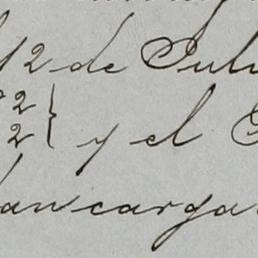 12 de Julu
22
2 } y el
lancarga